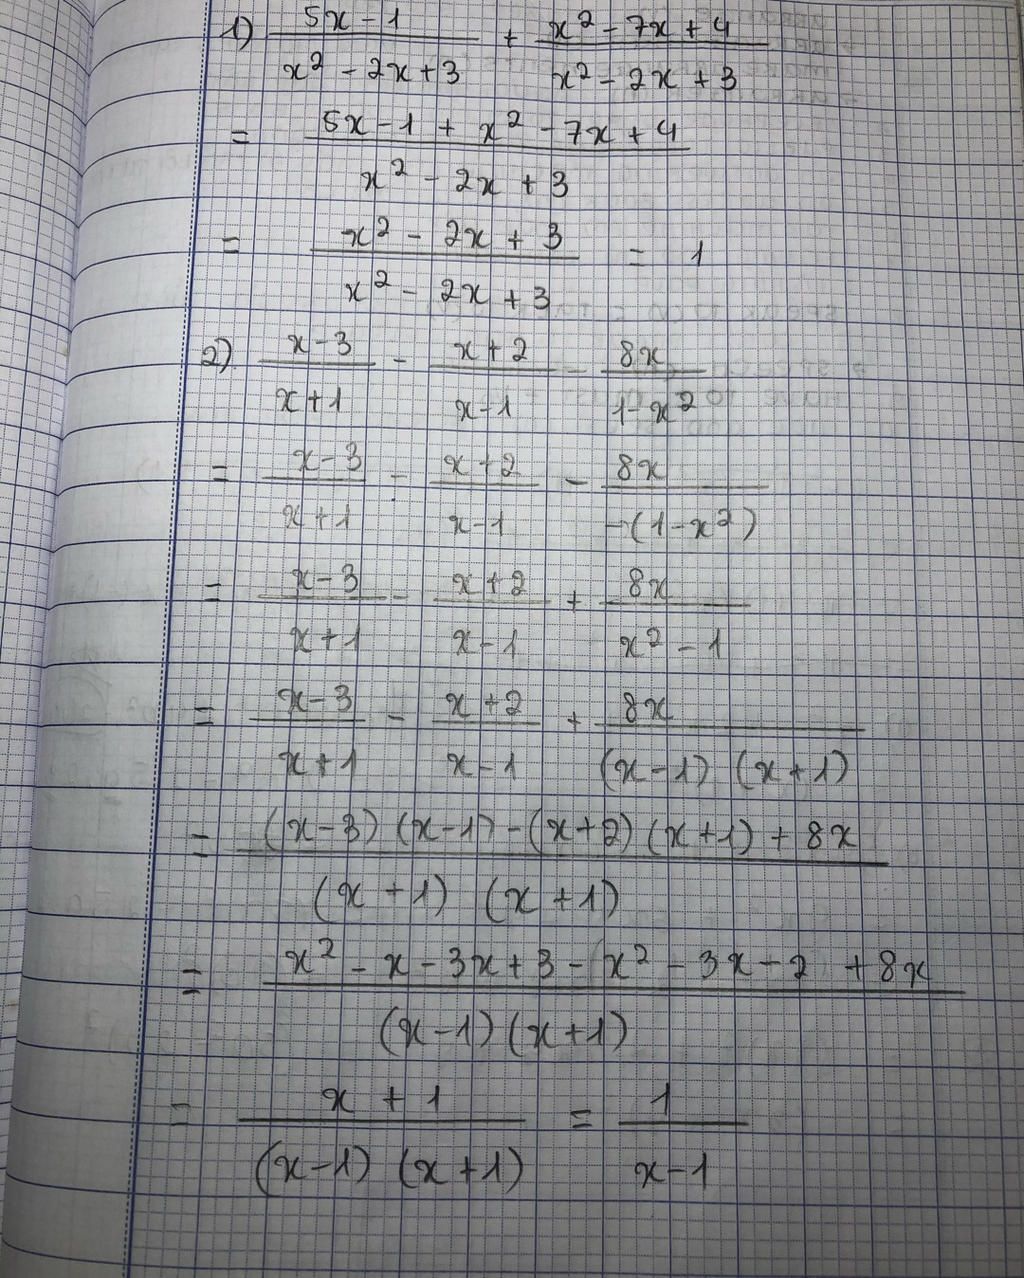 1) (5x - 1)/(x² - 2x + 3) + (x² - 7x + 4)/(x² - 2x + 3)
= (5x - 1 + x² - 7x + 4)/(x² - 2x + 3)
= (x² - 2x + 3)/(x² - 2x + 3) = 1
2) (x - 3)/(x + 1) - (x + 2)/(x - 1) - 8x/(1 - x²)
= (x - 3)/(x + 1) - (x + 2)/(x - 1) - 8x/(-(1 - x²))
= (x - 3)/(x + 1) - (x + 2)/(x - 1) + 8x/(x² - 1)
= (x - 3)/(x + 1) - (x + 2)/(x - 1) + 8x/((x - 1) (x + 1))
= ((x - 3) (x - 1) - (x + 2) (x + 1) + 8x)/((x + 1) (x + 1))
= (x² - x - 3x + 3 - x² - 3x - 2 + 8x)/((x - 1) (x + 1))
= (x + 1)/((x - 1) (x + 1)) = 1/(x - 1)